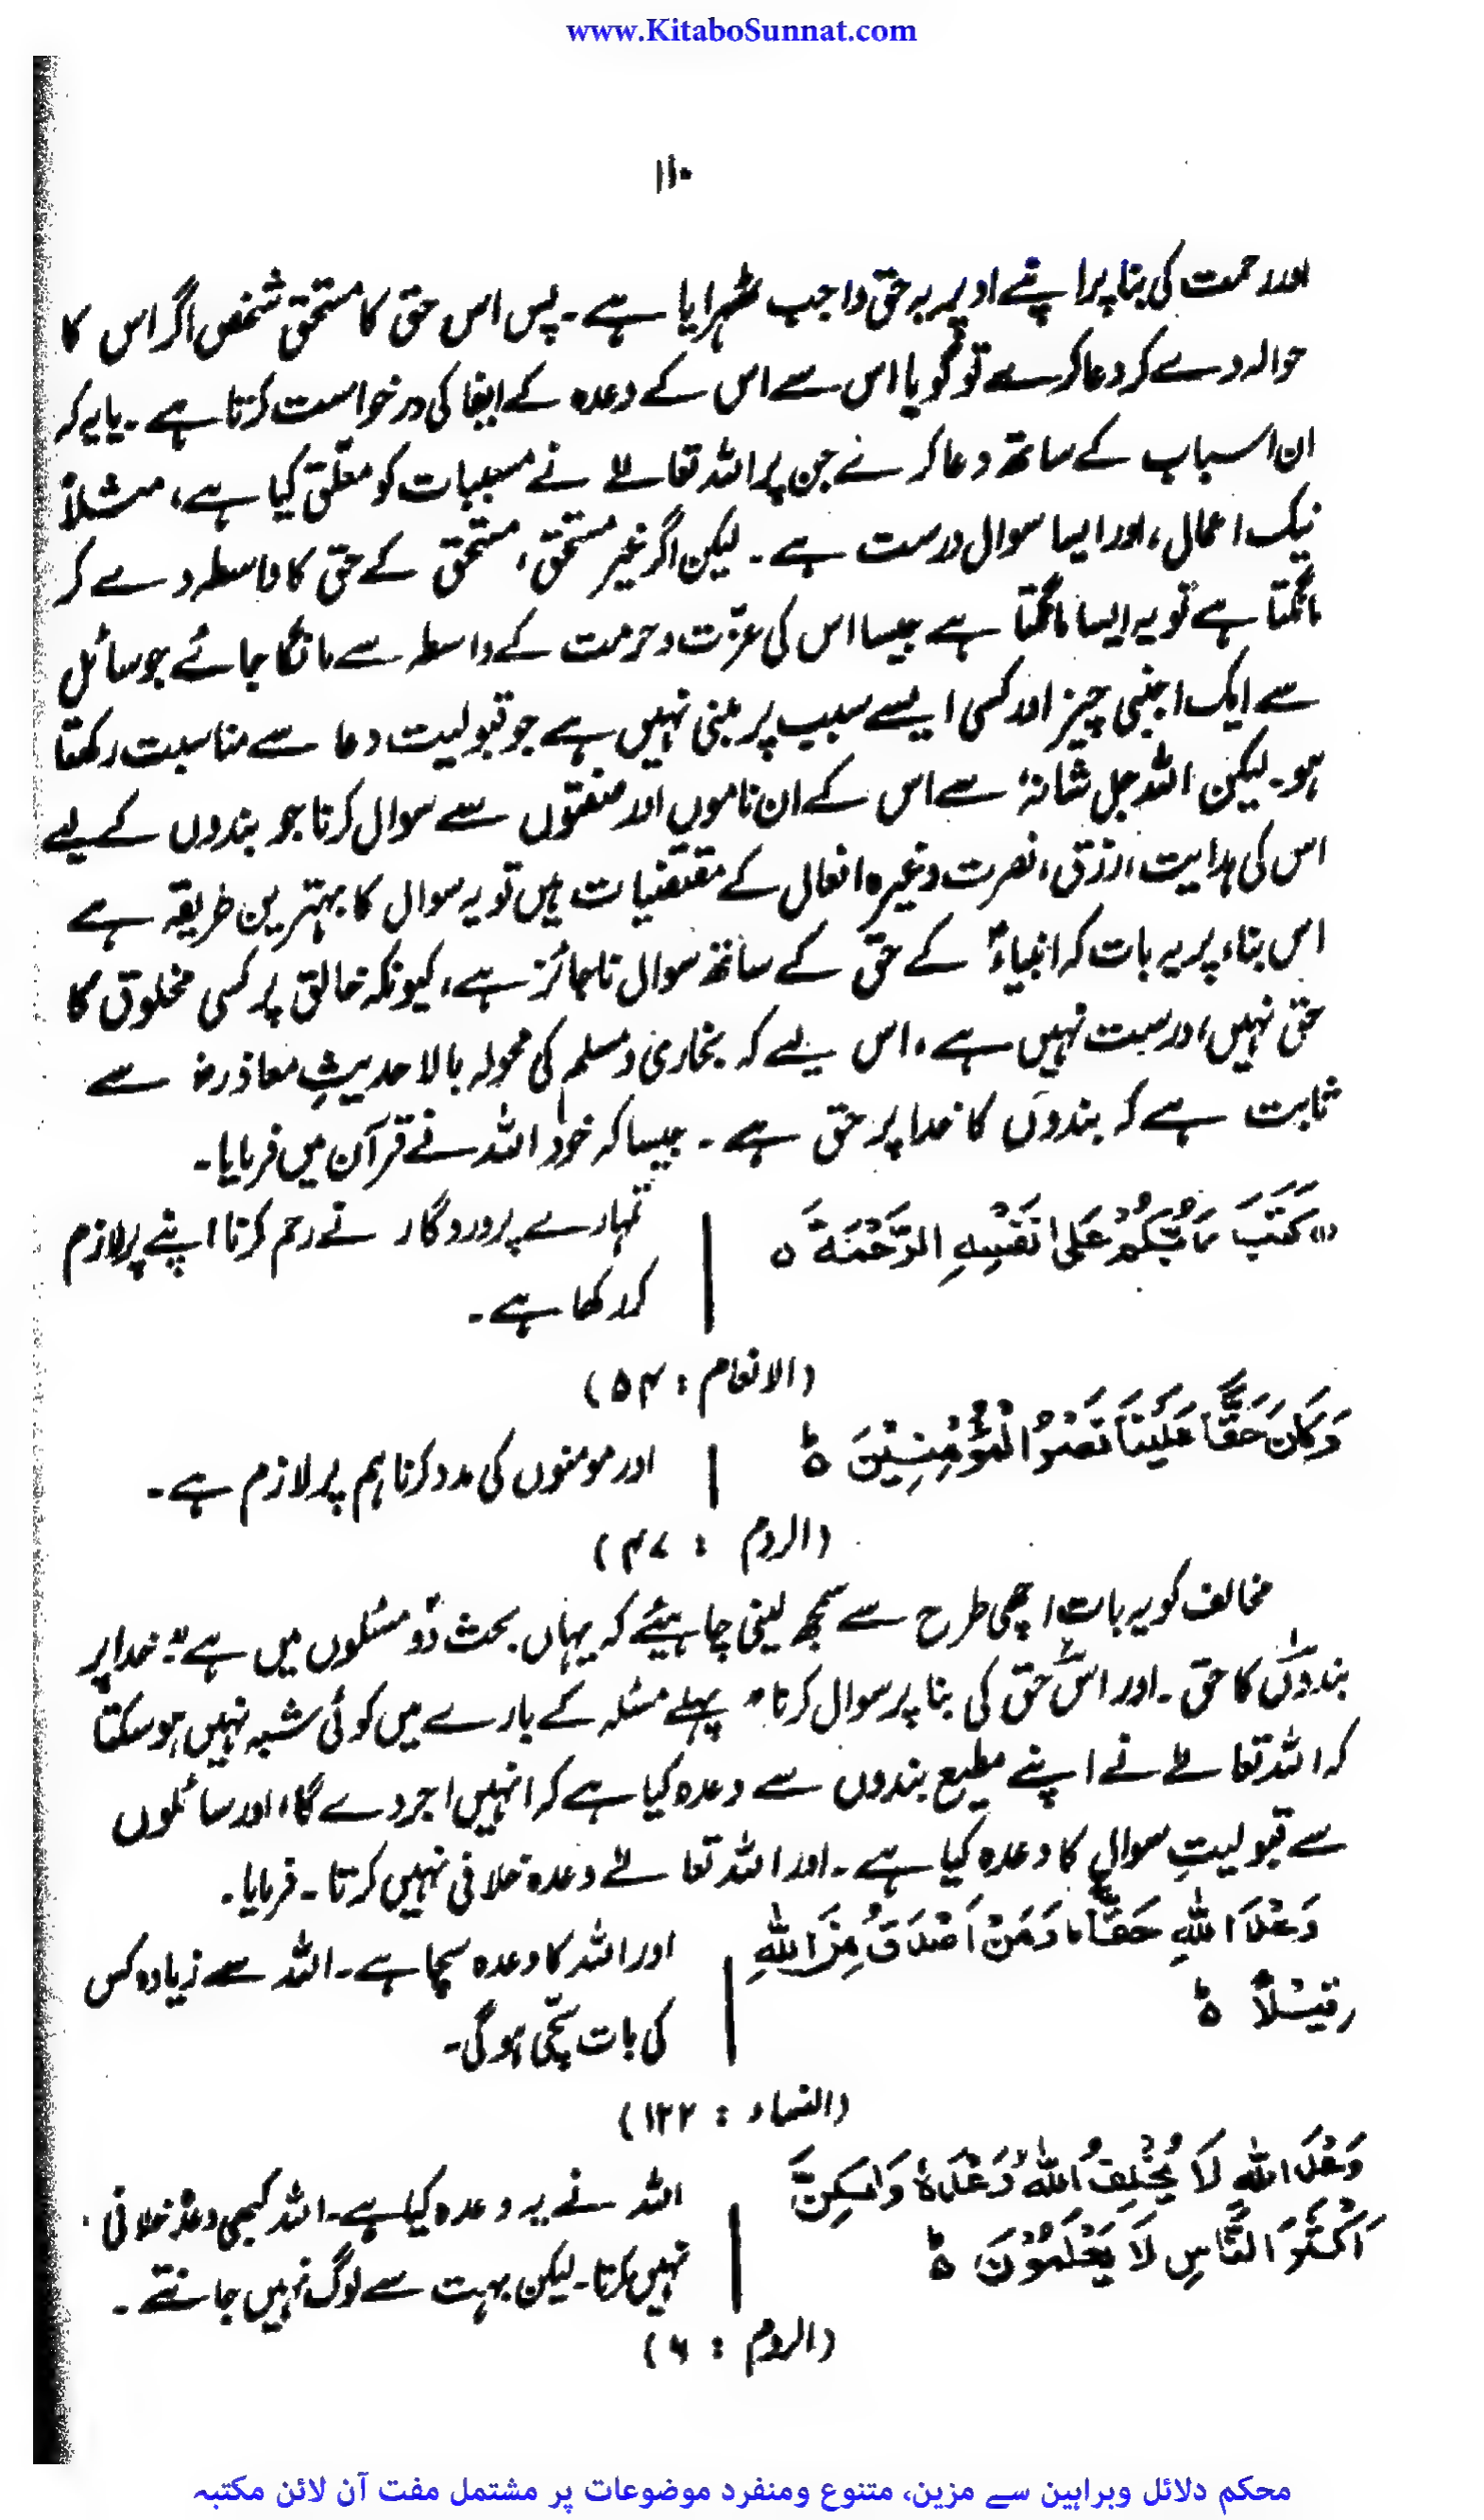 www.KitaboSunnat.com
۱۱۰
اور رحمت کی بنا پر اپنے اوپر یہ حق واجب ٹھہرایا ہے۔ پس اس حق کا مستحق شخص اگر اس کا
حوالہ دے کر دعا کرے تو گویا اس سے اس کے وعدہ کے ایفا کی درخواست کرتا ہے۔ یا یہ کہ
ان اسباب کے ساتھ دعا کرنے جن پر اللہ تعالےٰ نے مسببات کو معلّق کیا ہے، مثلاً
نیک اعمال، اور ایسا سوال درست ہے۔ لیکن اگر غیر مستحق، مستحق کے حق کا واسطہ دے کر
مانگتا ہے تو یہ ایسا مانگتا ہے جیسا اس کی عزّت و حرمت کے واسطہ سے مانگا جائے جو سائل
سے ایک اجنبی چیز اور کسی ایسے سبب پر مبنی نہیں ہے جو قبولیت دعا سے مناسبت رکھتا
ہو۔ لیکن اللہ جل شانہٗ سے اس کے ان ناموں اور صفتوں سے سوال کرنا جو بندوں کے لیے
اس کی ہدایت، رزق، نصرت وغیرہ افعال کے مقتضیات ہیں تو یہ سوال کا بہترین طریقہ ہے
اس بناء پر یہ بات کہ انبیاءؑ کے حق کے ساتھ سوال ناجائز ہے، کیونکہ خالق پر کسی مخلوق کا
حق نہیں اور ست نہیں ہے۔ اس لیے کہ بخاری و مسلم کی محولہ بالا حدیثِ معاذ رضؓ سے
ثابت ہے کہ بندوں کا خدا پر حق ہے۔ جیسا کہ خود اللہ نے قرآن میں فرمایا۔
"کَتَبَ رَبُّکُمْ عَلٰی نَفْسِہِ الرَّحْمَۃَ ہ | تمہارے پروردگار نے رحم کرنا اپنے پر لازم
کر رکھا ہے۔
(الانعام : ۵۴)
وَکَانَ حَقًّا عَلَیْنَا نَصْرُ الْمُؤْمِنِیْنَ ہ | اور مومنوں کی مدد کرنا ہم پر لازم ہے۔
(الروم : ۴۷)
مخالف کو یہ بات اچھی طرح سے سمجھ لینی چاہیئے کہ یہاں بحث دو مسئلوں میں ہے "خدا پر
بندوں کا حق۔ اور اس حق کی بنا پر سوال کرنا" پہلے مسئلہ کے بارے میں کوئی شبہ نہیں ہو سکتا
کہ اللہ تعالےٰ نے اپنے مطیع بندوں سے وعدہ کیا ہے کہ انہیں اجر دے گا، اور سائلوں
سے قبولیتِ سوال کا وعدہ کیا ہے۔ اور اللہ تعالےٰ وعدہ خلافی نہیں کرتا۔ فرمایا۔
وَعْدَ اللّٰہِ حَقًّا، وَمَنْ اَصْدَقُ مِنَ اللّٰہِ | اور اللہ کا وعدہ سچا ہے۔ اللہ سے زیادہ کس
قِیْلاً ہ | کی بات سچّی ہوگی۔
(النساء : ۱۲۲)
وَعْدَ اللّٰہِ لَا یُخْلِفُ اللّٰہُ وَعْدَہٗ وَلٰکِنَّ | اللہ نے یہ وعدہ کیا ہے۔ اللہ کبھی وعدہ خلافی
اَکْثَرَ النَّاسِ لَا یَعْلَمُوْنَ ہ | نہیں کرتا۔ لیکن بہت سے لوگ نہیں جانتے۔
(الروم : ۶)
محکم دلائل وبراہین سے مزین، متنوع ومنفرد موضوعات پر مشتمل مفت آن لائن مکتبہ